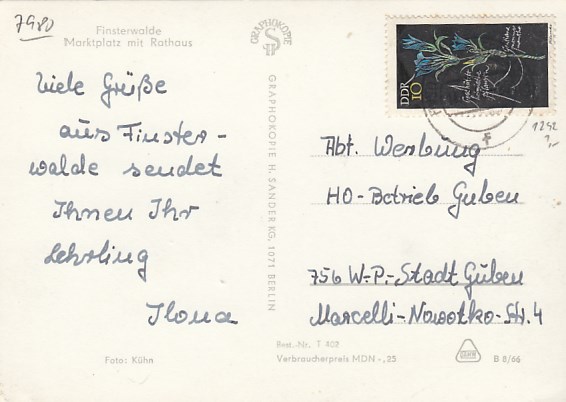 7980
Finsterwalde
Marktplatz mit Rathaus
Viele Grüße
aus Finster-
walde sendet
Ihnen Ihr
Lehrling
Ilona
Foto: Kühn
GRAPHOKOPIE
GRAPHOKOPIE H. SANDER KG, 1071 BERLIN
DDR
10
Geschützte
heimische
Pflanzen
1242
1,-
Abt. Werbung
HO-Betrieb Guben
756 W.-P.-Stadt Guben
Marcelli-Nowotko-Str. 4
Best.-Nr. T 802
Verbraucherpreis MDN -,25
B 8/66